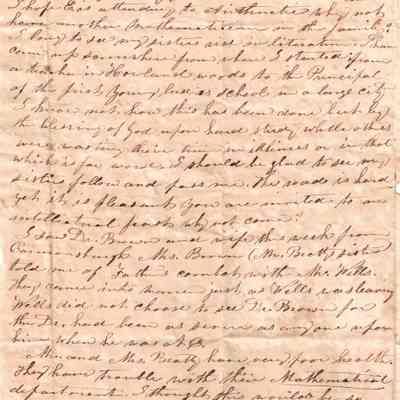 I hope E is attending to Arithmetic why not
have another Mathematician in the family?
I long to see my sisters rise in literature. I have
come up somewhere from where I started from
a teacher in Howland woods to the Principal
of the first young ladies school in a large city
I know not how this has been done but by
the blessing of God upon hard study while others
were wasting their time in idleness or in that
which is far worse. I should be glad to see my
sisters follow and pass me. The road is hard
yet it is pleasant. You are invited to an
intellectual feast why not come?
I saw Dr. Brown and wife this week from
Canonsburgh. Mrs. Brown (Mr. Beatty's sister
told me of Father combat with Mr. Wells.
They came into town just as Wells was leaving
Wells did not choose to see Dr. Brown for
the Dr. had been as severe as any one upon
him when he was at
Mr. and Mrs. Beatty have very poor health
They have trouble with their Mathematical
department. I thought this would be so